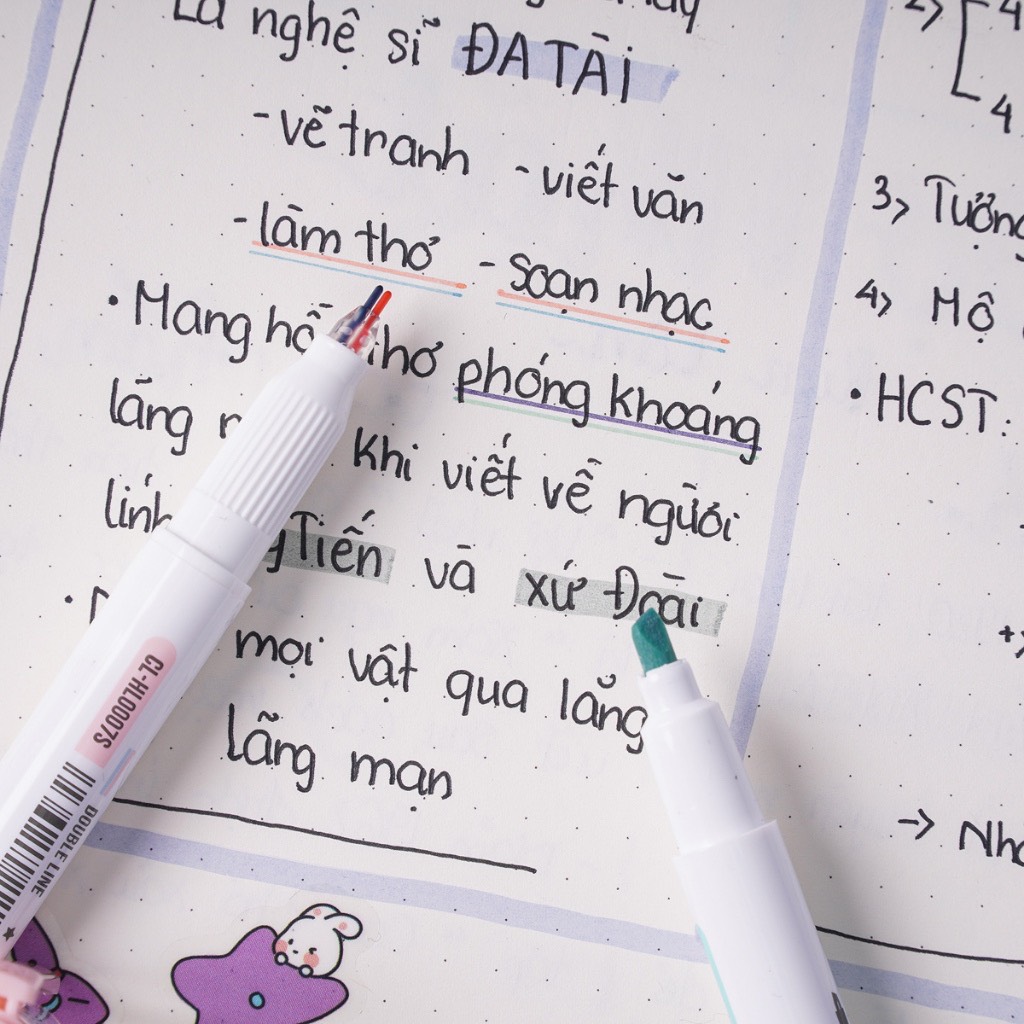 Là nghệ sĩ ĐA TÀI
- vẽ tranh - viết văn
- làm thơ - soạn nhạc
• Mang hồ thơ phóng khoáng
lãng khi viết về người
lính Tiến và xứ Đoài
•
mọi vật qua lăng
lãng mạn
4
4
3> Tưởng
4> Mộ
• HCST:
+>
→ Nh
CL-HL0007S
DOUBLE LINE